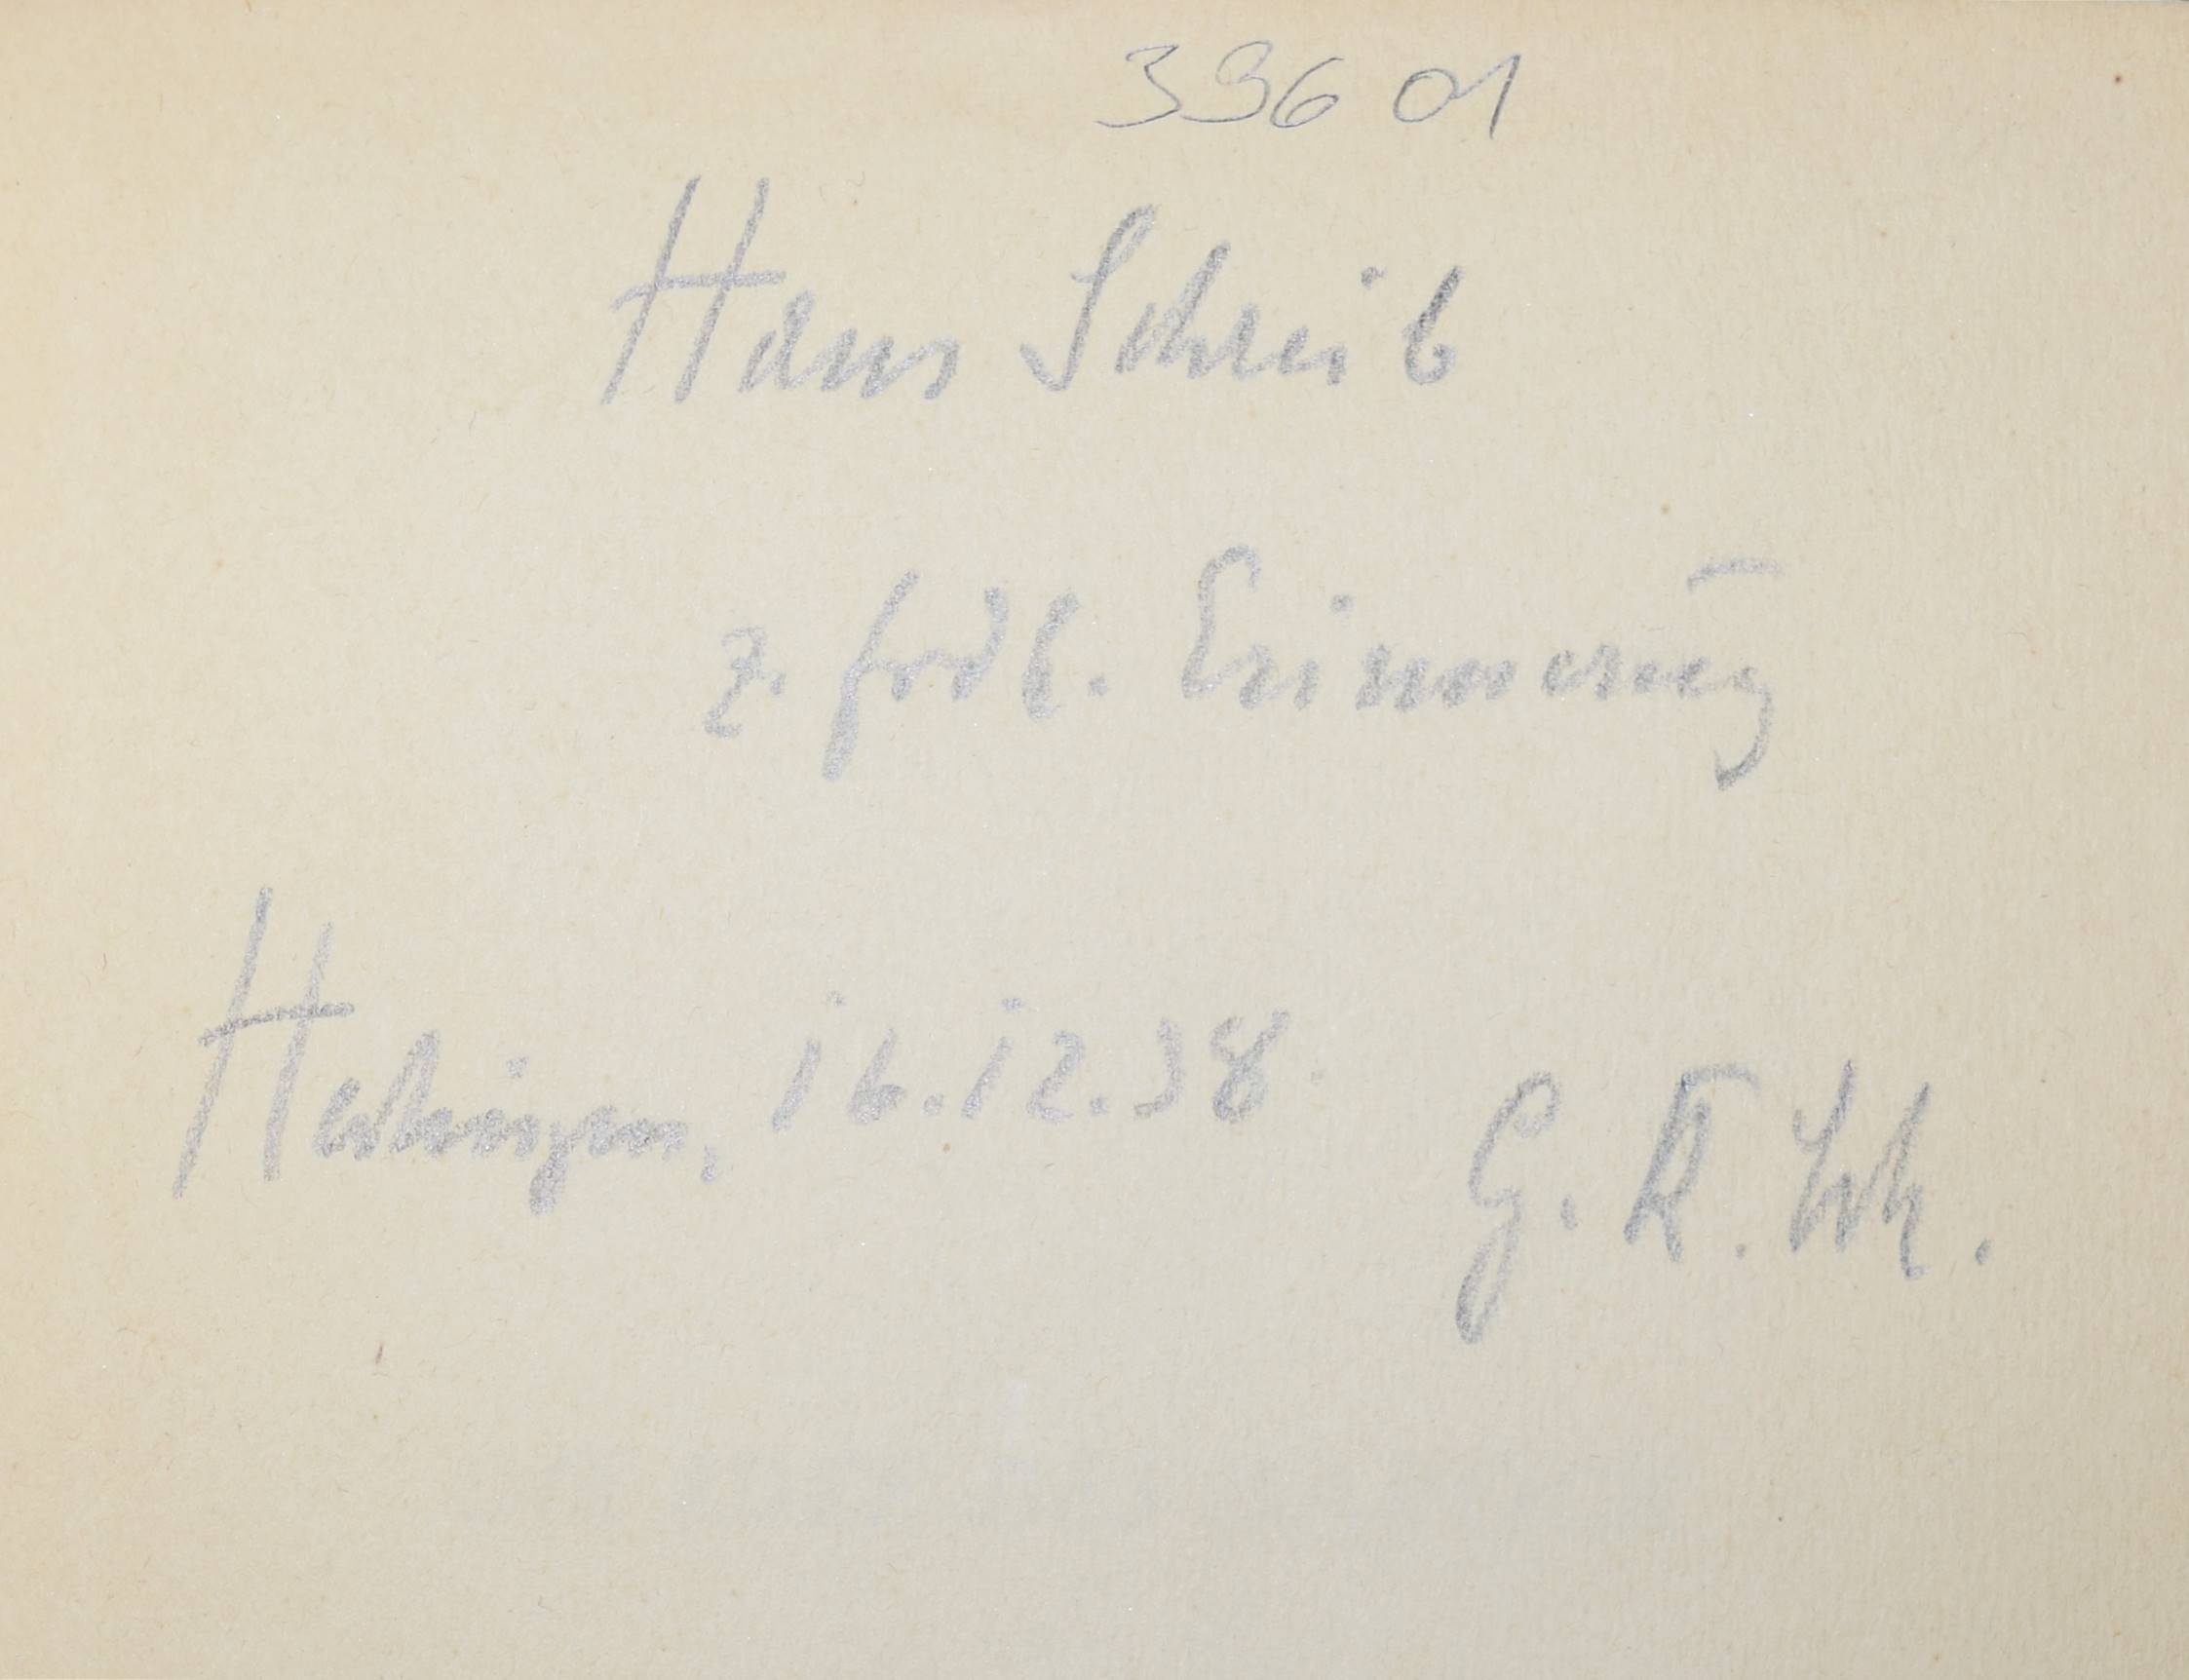 33601
Hans Schreib
z. frdl. Erinnerung
16.12.38
G. K.